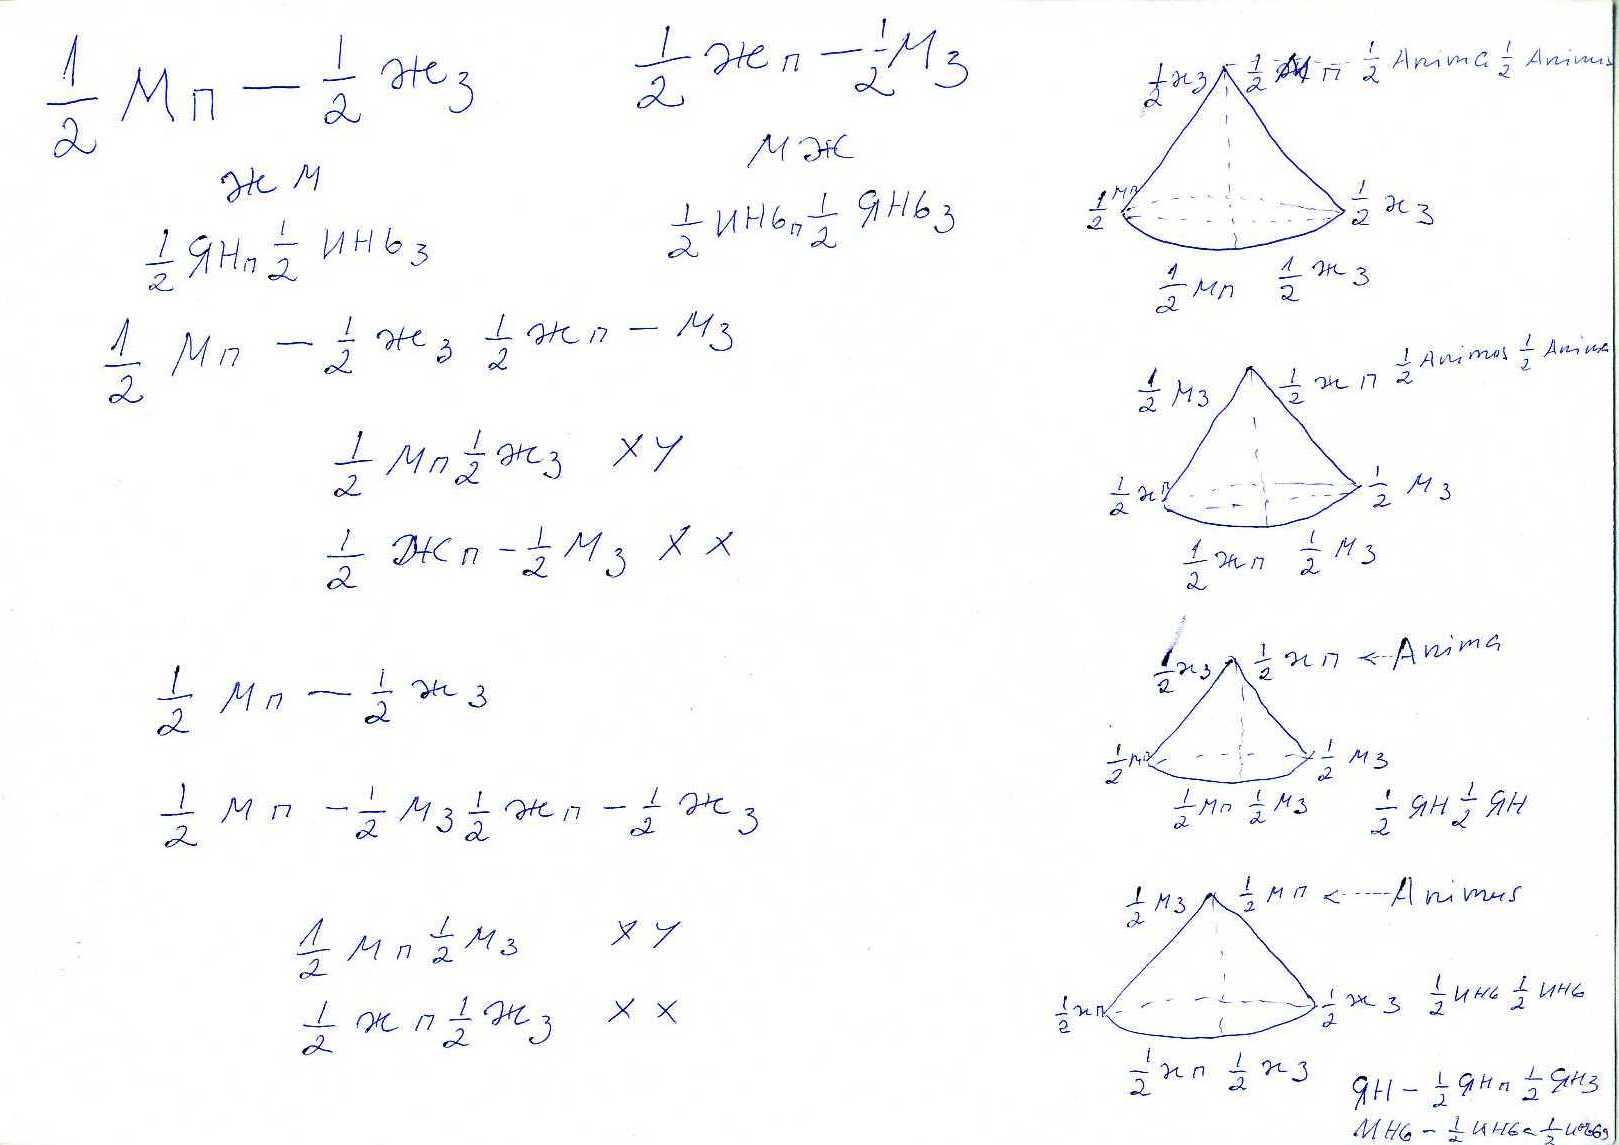 1/2 Мп — 1/2 жз
1/2 жп — 1/2 Мз
ж м
м ж
1/2 ЯНп 1/2 ИНЬз
1/2 ИНЬп 1/2 ЯНЬз
1/2 Мп — 1/2 жз 1/2 жп — Мз
1/2 Мп 1/2 жз XY
1/2 Жп - 1/2 Мз X X
1/2 Мп — 1/2 жз
1/2 Мп - 1/2 Мз 1/2 жп - 1/2 жз
1/2 Мп 1/2 Мз XY
1/2 жп 1/2 жз X X
1/2 жз 1/2 М п 1/2 Anima 1/2 Animus
1/2 мп 1/2 жз
1/2 Мп 1/2 жз
1/2 Мз 1/2 жп 1/2 Animos 1/2 Anima
1/2 жп 1/2 Мз
1/2 жп 1/2 Мз
1/2 жз 1/2 жп ← Anima
1/2 мп 1/2 Мз
1/2 Мп 1/2 Мз 1/2 ЯН 1/2 ЯН
1/2 Мз 1/2 Мп ← Animus
1/2 жп 1/2 жз 1/2 ИНЬ 1/2 ИНЬ
1/2 жп 1/2 жз
ЯН — 1/2 ЯНп 1/2 ЯНз
ИНЬ — 1/2 ИНЬ 1/2